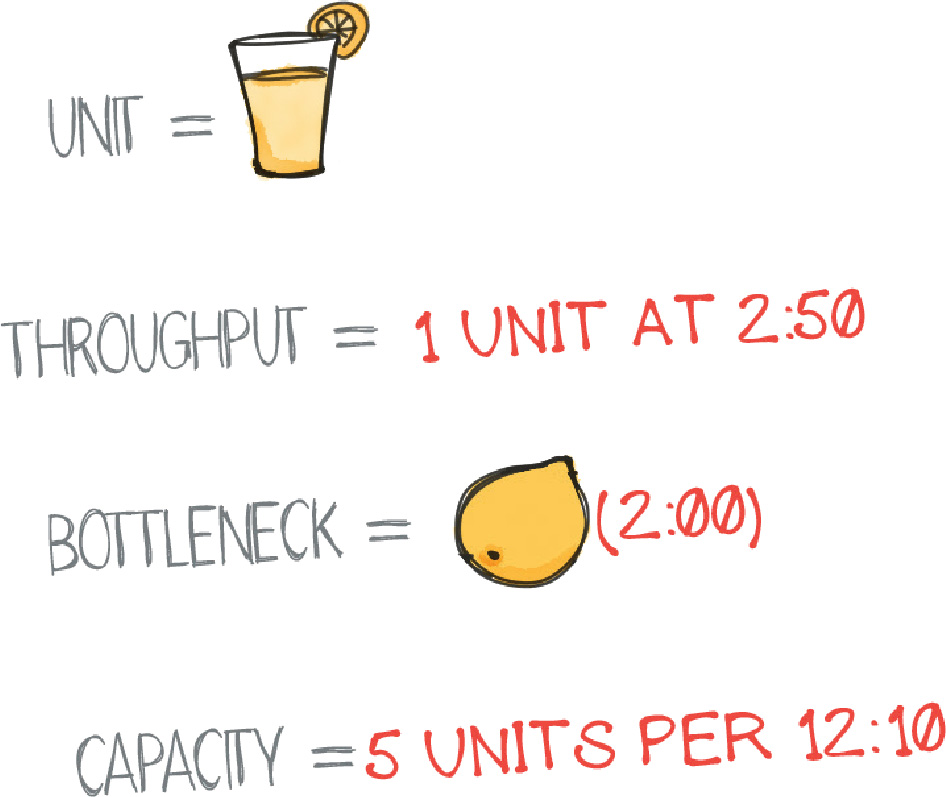 UNIT =
THROUGHPUT = 1 UNIT AT 2:50
BOTTLENECK = (2:00)
CAPACITY = 5 UNITS PER 12:10